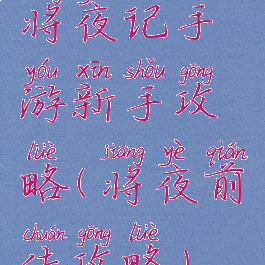 将夜记手
yóu xīn shǒu gōng
游新手攻
lüè jiāng yè qián
略(将夜前
chuán gōng lüè
传攻略)